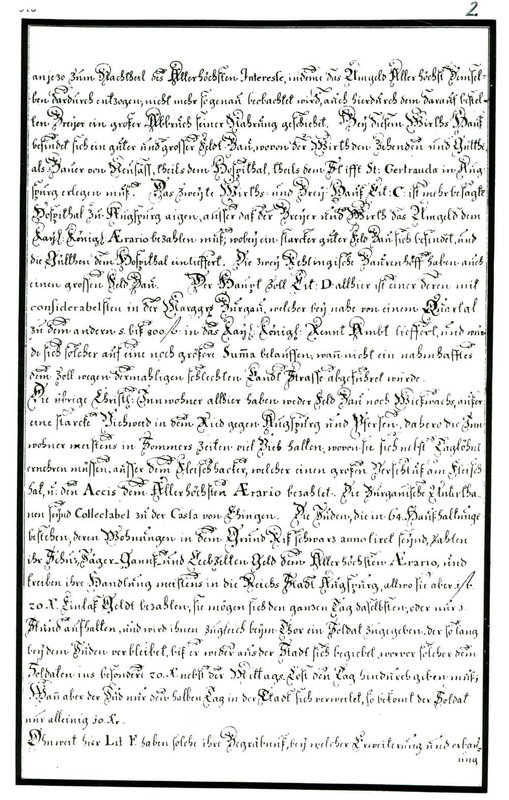 2.
anjezo zum Nachtheil des Allerhöchsten Interesse, indeme das Umgeld Allerhöchst Demsel-
ben dardurch entzogen, nicht mehr so genau beobachtet wird, auch hierdurch dem darauf bestel-
ten Breÿer ein großer Abbruch seiner Nahrung geschiehet. Beÿ diesem Wirths Hauß
befindet sich ein guter und grosser Feldt Bau, wovon der Wirth den Zehenden und Gülthe
als Bauer von Neusäss, theils dem Hospithal, theils dem Stifft St: Gertrauda in Aug-
spurg erlegen muß. Das zweÿte Wirths- und Breÿ-Hauß Lit: C: ist mehr besagte
Hospithal zu Augspurg aigen, ausser daß der Breÿer und Wirth das Umgeld dem
Kaÿl: Königl: Ærario bezahlen muß, wobeÿ ein starcker guter Feld Bau sich befindet, und
die Gülthen dem Hospithal einliefert. Die zweÿ Rehlingische Baurenhöff haben auch
einen grossen Feld Bau. Der Haupt Zoll Lit: D: allhier ist einer deren mit
considerabelsten in der Marggrf: Burgau, welcher beÿ nahe von einem Quartal
zu dem andern 5. biß 800 f. in das Kaÿl: Königl: Rennt Ambt liefert, und wür-
de sich solcher auf eine noch größere Suma belauffen, wan nicht ein nahmhafftes
dem Zoll wegen dermahligen schlechten Landt Strasse abgeführet würde.
Die übrige Christl: Innwohner allhier haben weder Feld Bau noch Wießwachs, ausser
eine starcke Viehweid in dem Ried gegen Augspurg und Pfersen, dahero die Inn-
wohner meistens in Sommers Zeiten viel Vieh halten, wovon sie sich nebst Taglöhnen
ernehren müssen, ausser dem Fleischhacker, welcher einen großen Verschluß am Fleisch
hat, u: den Accis dem Allerhöchsten Ærario bezahlet. Die Burgauische Untertha-
nen seÿnd Collectabel zu der Casta von Ehingen. Die Juden, die in 64. Haußhaltungen
bestehen, deren Wohnungen in dem Grund Riß schwarz annotiret seÿnd, zahlen
ihr Schuz, Jäger- Ganß- und Lechzelten Geld dem Allerhöchsten Ærario, und
treiben ihre Handlung meistens in die Reichs Stadt Augspurg, allwo sie aber 1 f.
20. X. Einlaß Geldt bezahlen, sie mögen sich den ganzen Tag daselbsten, oder nur 1.
Stund aufhalten, und wird ihnen zugleich beÿm Thor ein Soldat zugegeben, der so lang
beÿ dem Juden verbleibet, biß er wider aus der Stadt sich begiebet, worvor solcher dem
Soldaten ins besondere 20. X. nebst der Mittags Cost den Tag hindurch geben muß;
Wañ aber der Jud nur den halben Tag in der Stadt sich verweilet, so bekomt der Soldat
nur alleinig 10. Xr.
Ohnweit hier Lit F. haben solche ihre Begräbnuß, beÿ welcher Erweiterung und erbau-
ung